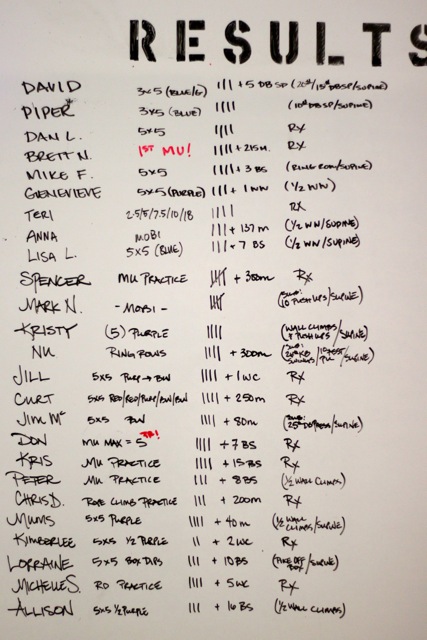 RESULTS
DAVID 3x5 (BLUE/G) ||| + 5 DBSP (20#/15# DBSP/SUPINE)
PIPER 3x5 (BLUE) |||| (10# DBSP/SUPINE)
DAN L. 5x5 |||| RX
BRETT N. 1ST MU! |||| + 215M. RX
MIKE F. 5x5 |||| + 3 BS (RING ROW/SUPINE)
GENEVIEVE 5x5 (PURPLE) ||| + 1 WW (1/2 WW)
TERI 2.5/5/7.5/10/18 |||| RX
ANNA MOBI ||| + 137 m (1/2 WW/SUPINE)
LISA L. 5x5 (BLUE) ||| + 7 BS (1/2 WW/SUPINE)
SPENCER MU PRACTICE + 300m Rx
MARK N. - MOBI - (10 PUSHUPS/SUPINE)
KRISTY (5) PURPLE |||| (WALL CLIMBS/PUSHUPS/SUPINE)
NU RING ROWS |||| + 300m
JILL 5x5 PURP → BW |||| + 1 WC Rx
CURT 5x5 RED/RED/PURP/BW/BW |||| + 250m Rx
JIM Mc 5x5 BW |||| + 80m (25# DBPRESS/SUPINE)
DON MU MAX = 5 PR! |||| + 7 BS Rx
KRIS MU PRACTICE |||| + 15 BS Rx
PETER MU PRACTICE |||| + 8 BS (1/2 WALL CLIMBS)
CHRIS D. ROPE CLIMB PRACTICE |||| + 200m Rx
MUMS 5x5 PURPLE |||| + 40m (1/2 WALL CLIMBS/SUPINE)
KIMBERLEE 5x5 1/2 PURPLE || + 2 WC Rx
LORRAINE 5x5 BOX DIPS ||| + 10 BS (PIKE OFF BOX/SUPINE)
MICHELLE S. RD PRACTICE ||| + 5 WC Rx
ALLISON 5x5 1/2 PURPLE ||| + 16 BS (1/2 WALL CLIMBS)